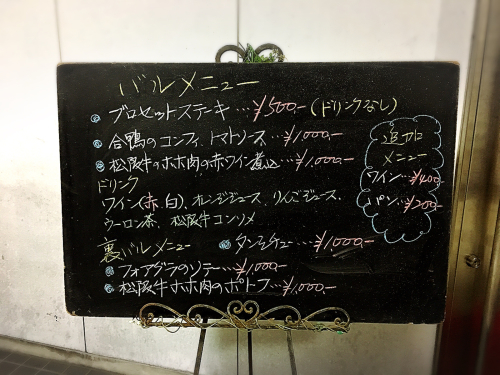 バルメニュー
ブロセットステーキ…¥500-(ドリンクなし)
合鴨のコンフィ、トマトソース…¥1,000-
松阪牛のホホ肉の赤ワイン煮込…¥1,000-
ドリンク
ワイン(赤白)、オレンジジュース、りんごジュース、
ウーロン茶、松阪牛コンソメ
裏バルメニュー
タンシチュー…¥1,000-
フォアグラのソテー…¥1,000-
松阪牛ホホ肉のポトフ…¥1,000-
追加
メニュー
ワイン…¥400-
パン…¥200-